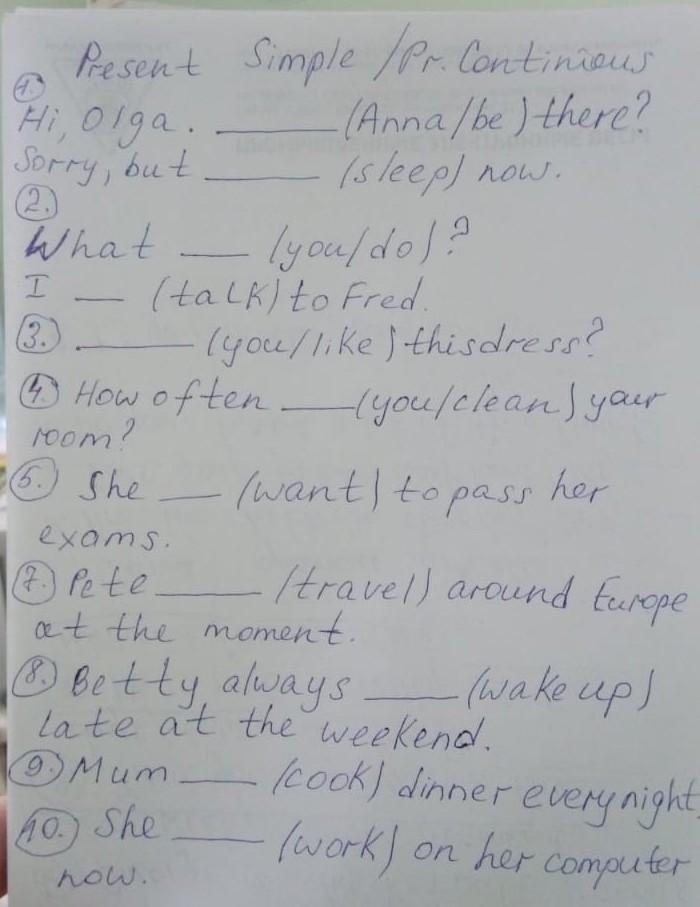 Present Simple / Pr. Continious
1.
Hi, Olga. ______ (Anna/be) there?
Sorry, but ______ (sleep) now.
2.
What ___ (you/do)?
I ___ (talk) to Fred.
3. ______ (you/like) this dress?
4. How often ___ (you/clean) your
room?
5. She ___ (want) to pass her
exams.
7. Pete ______ (travel) around Europe
at the moment.
8. Betty always _____ (wake up)
late at the weekend.
9. Mum ____ (cook) dinner every night.
10. She _____ (work) on her computer
now.